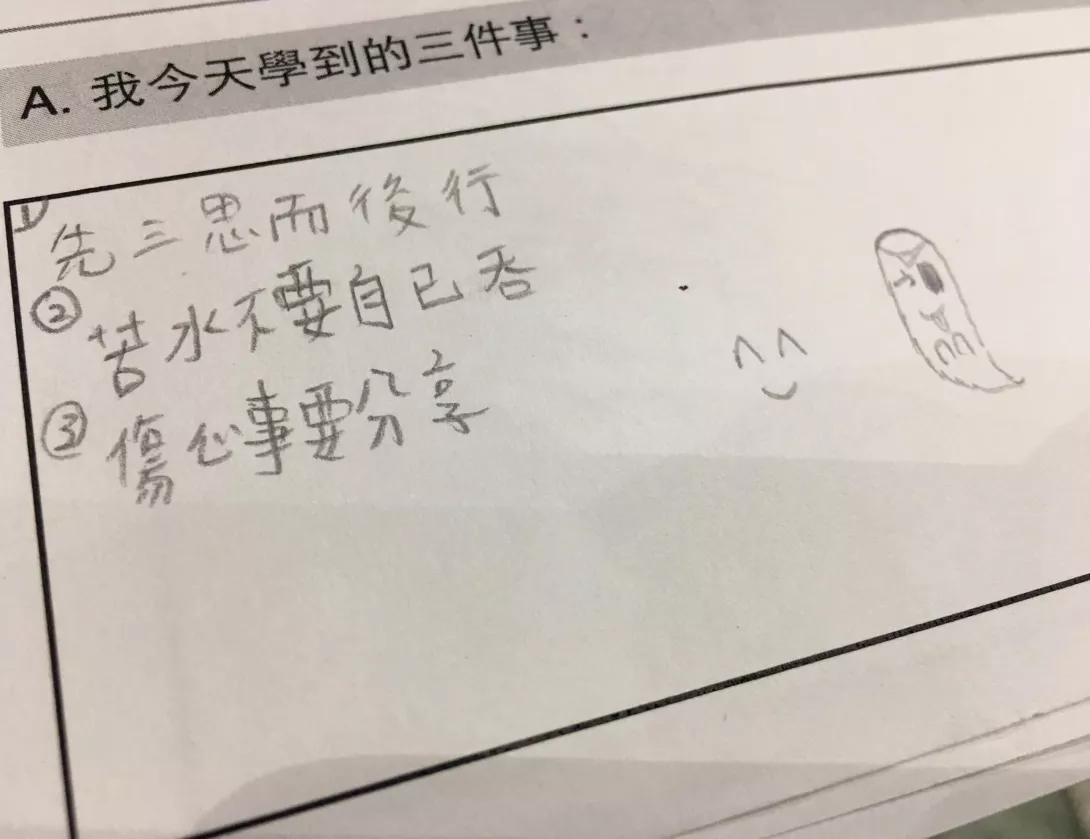 A. 我今天學到的三件事：
① 先三思而後行
② 苦水不要自己吞
③ 傷心事要分享